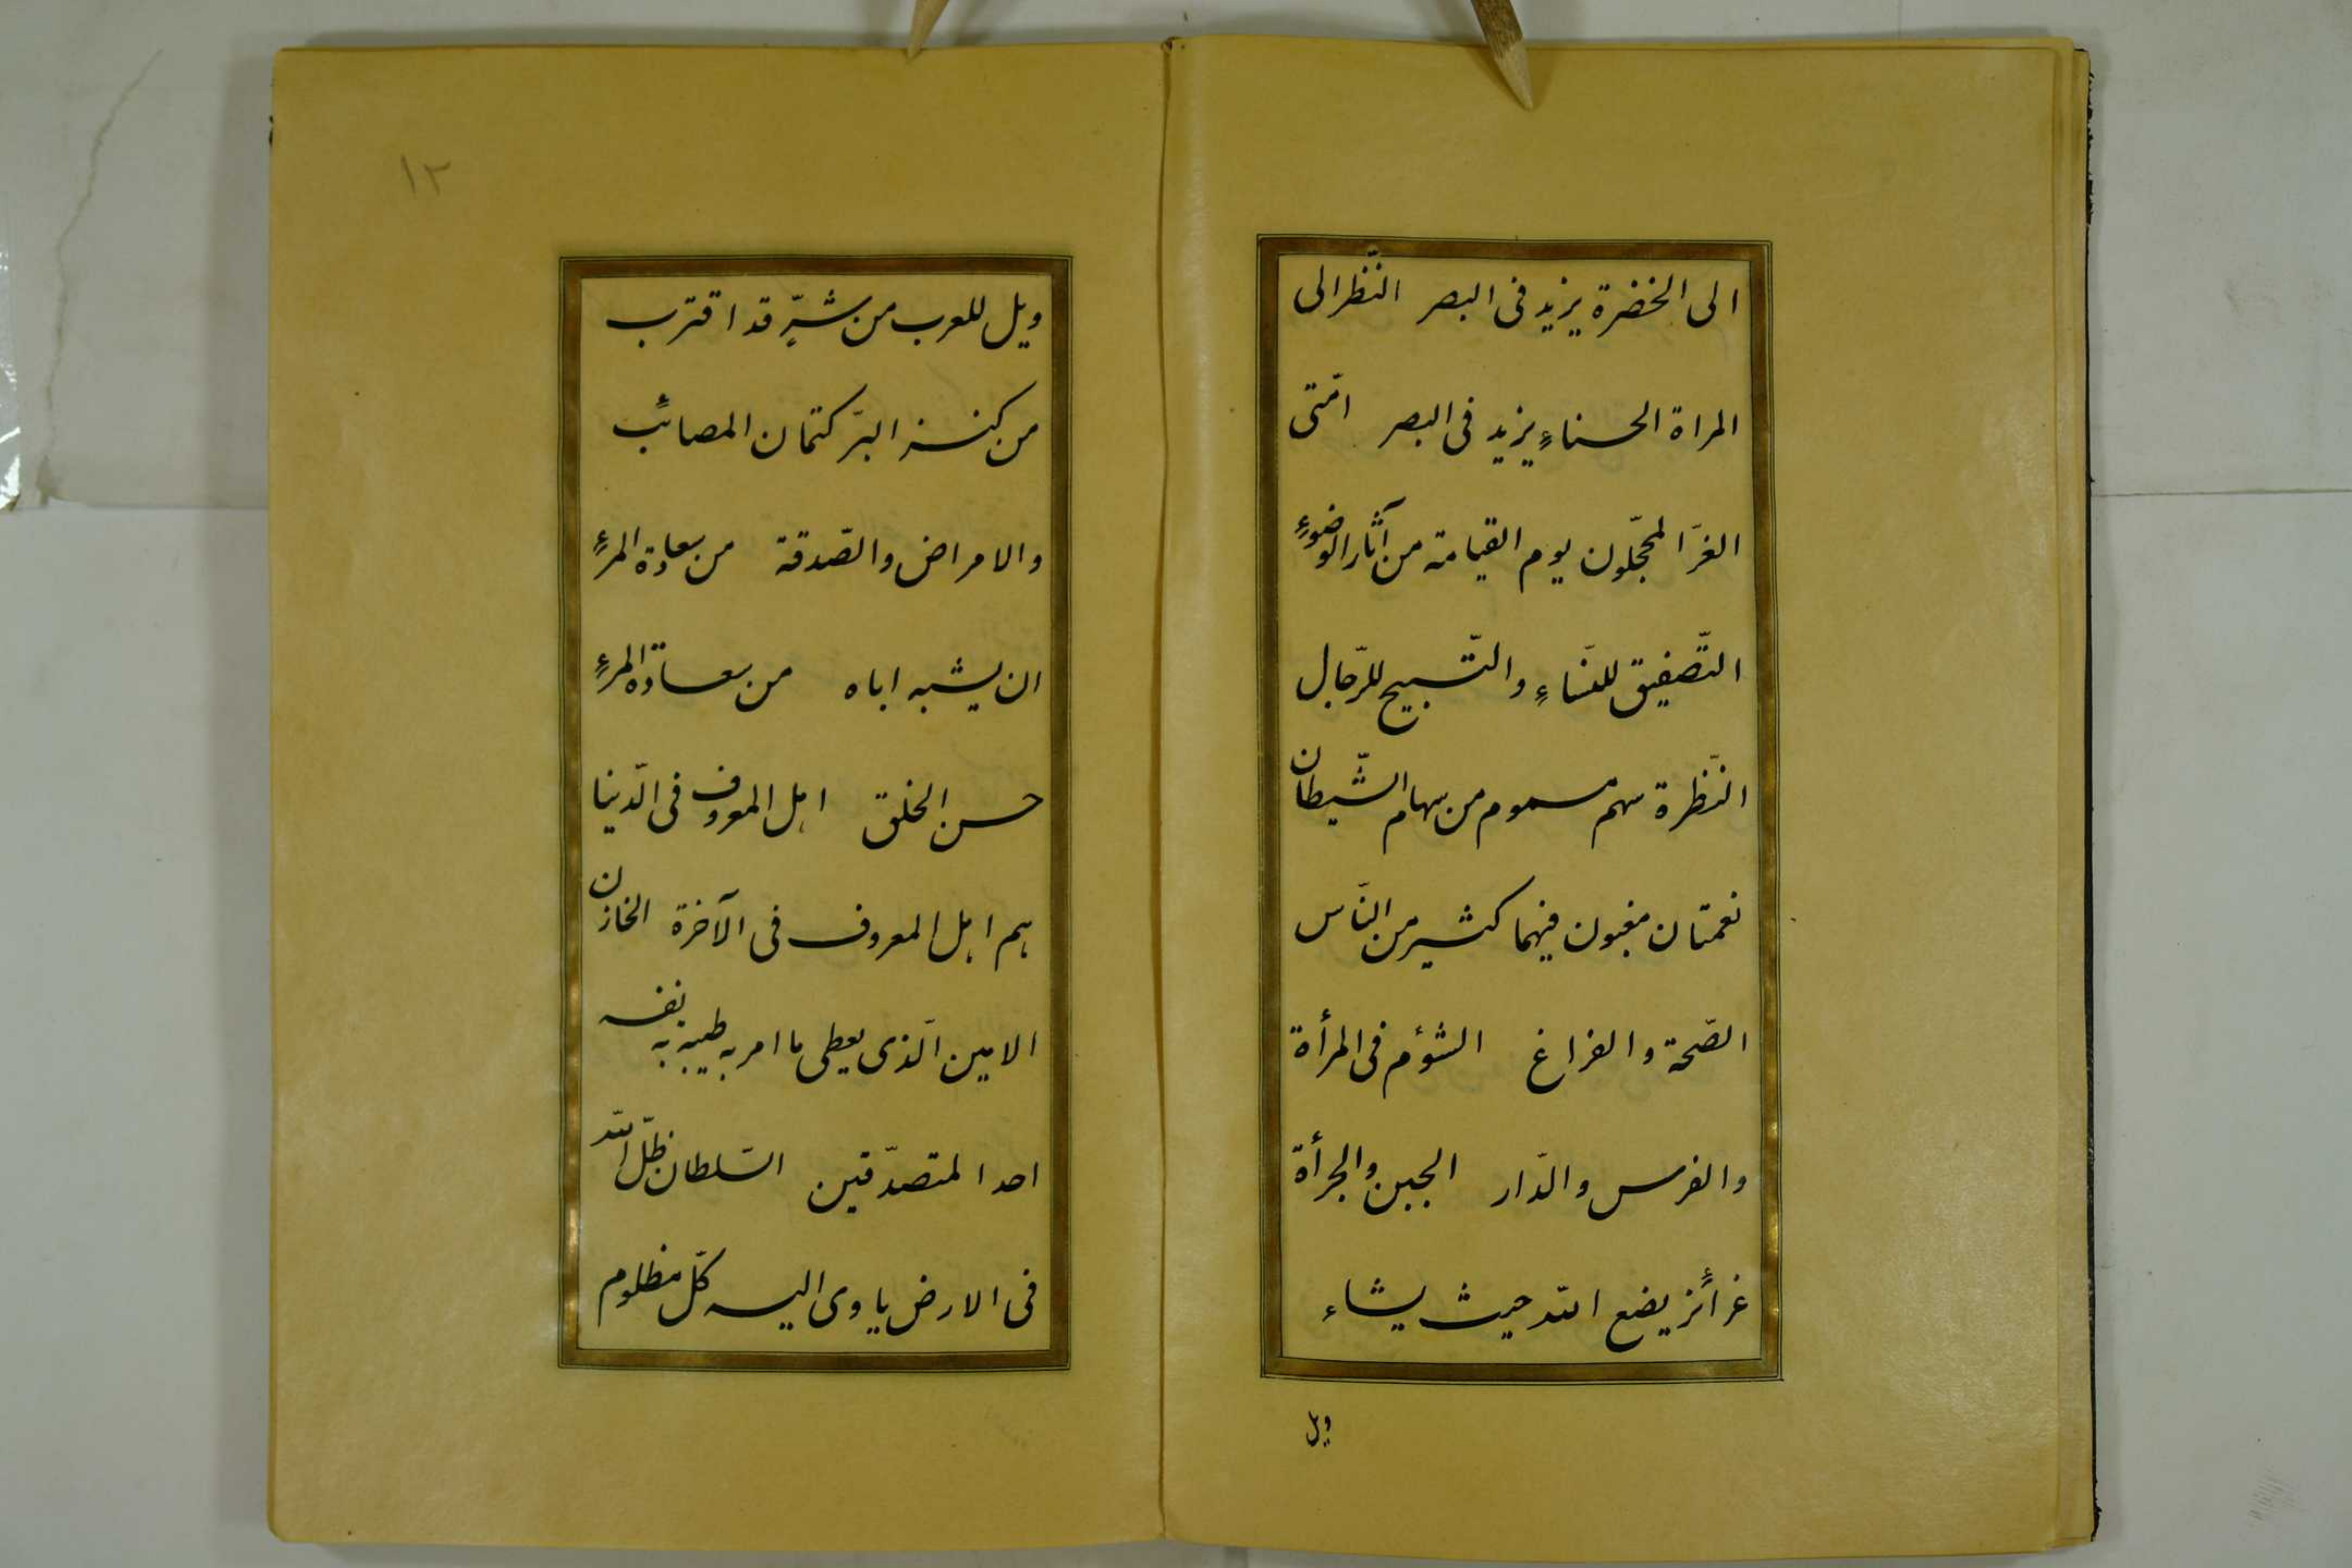 الى الخضرة يزيد فى البصر النّظر الى
المراة الحسناءِ يزيد فى البصر امّتى
الغرّ المحجّلون يوم القيامة من آثار الوضوءِ
التّصفيق للنّساءِ والتّسبيح للرّجال
النّظرة سهم مسموم من سهام الشّيطان
نعمتان مغبون فيهما كثير من النّاس
الصّحة والفراغ الشؤم فى المرأة
والفرس والدّار الجبن والجرأة
غرائز يضع الله حيث يشاء
ويل
١٢
ويل للعرب من شرّ قد اقترب
من كنز البرّ كتمان المصائب
والامراض والصّدقة من سعادة المرءِ
ان يشبه اباه من سعادة المرءِ
حسن الخلق اهل المعروف فى الدّنيا
هم اهل المعروف فى الآخرة الخازن
الامين الّذى يعطى ما امر به طيبه به نفسه
احد المتصدّقين السّلطان ظلّ الله
فى الارض ياوى اليه كلّ مظلوم